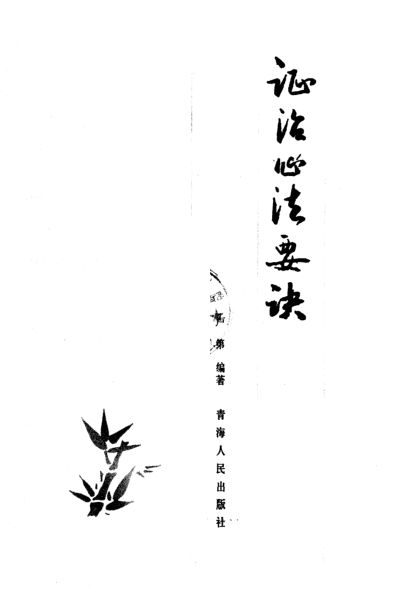 证治心法要诀
第 编著 青海人民出版社